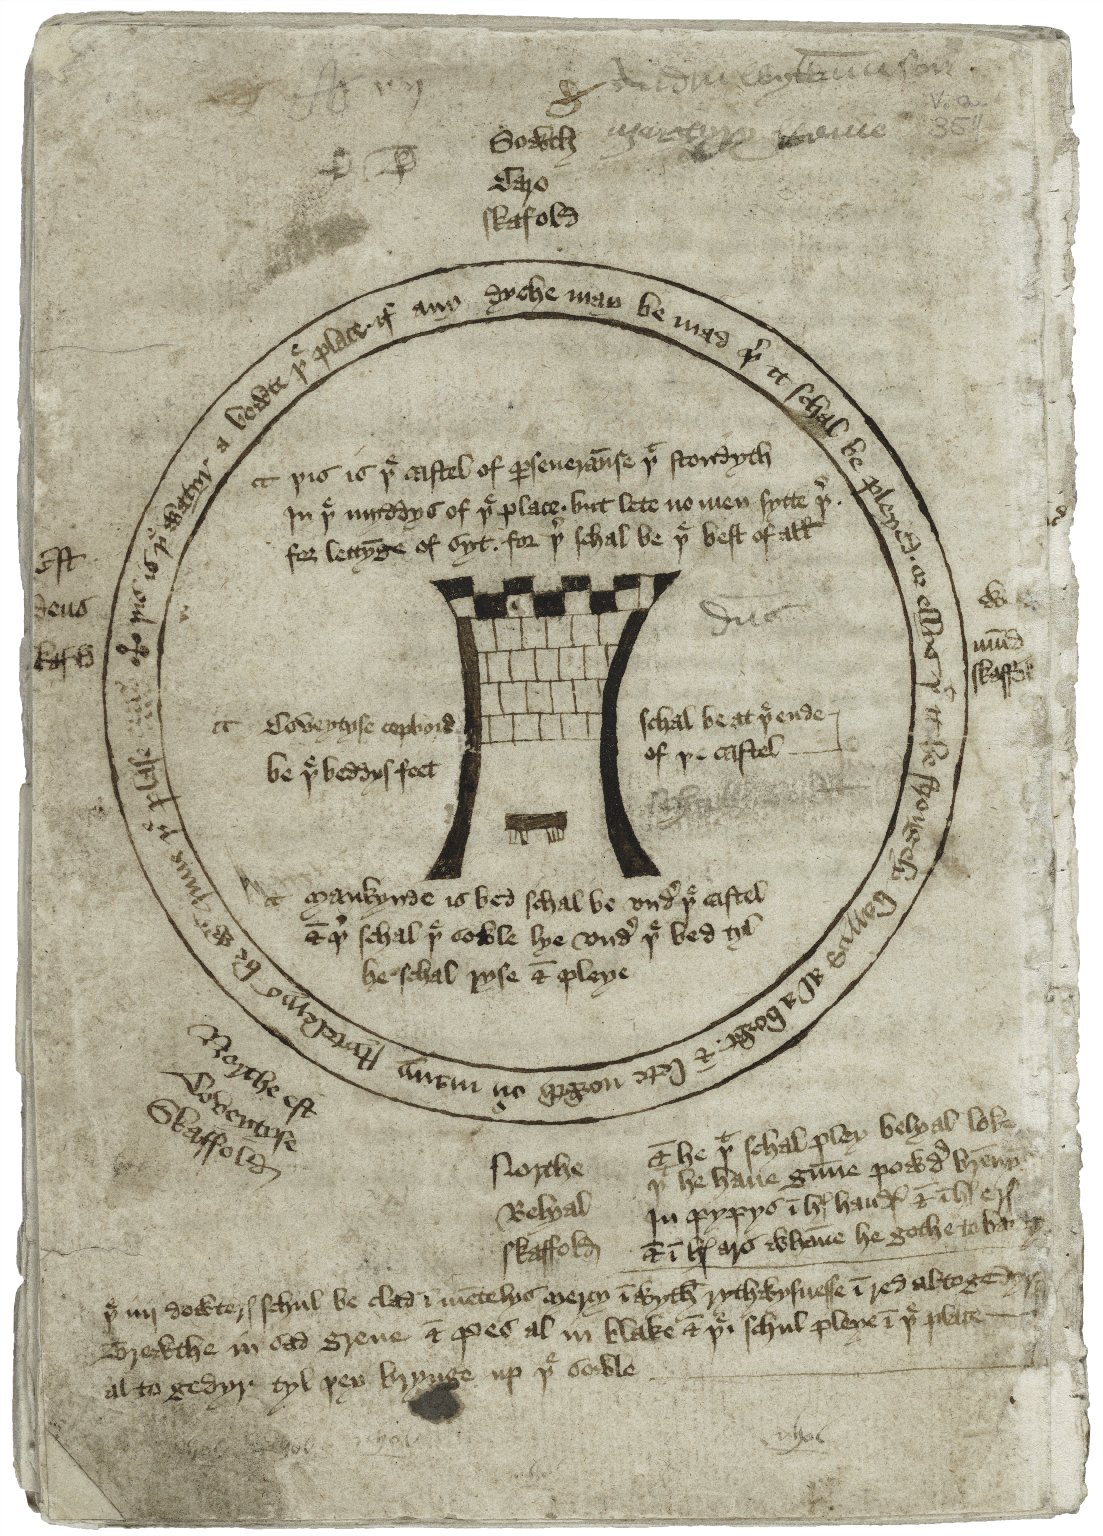 V.a.
354
Sowth
Caro
skafold
þis is þe watyr a bowte þe place. if any dyche may be mad þer it schal be pleyed. or ellys þat it be strongely barryd al a bowt. & lete nowth ouer many stytelerys be with inne þe plase
þis is þe castel of perseueraunse þat stondyth
In þe myddys of þe place. but lete no men sytte þer.
for lettynge of syt. for þer schal be þe best of all
Est
deus
skafold
w
mund
skaffold
Coveytyse copbord
be þe beddys feet
schal be at þe ende
of þe castel
Mankynde is bed schal be vndyr þe castel
& þer schal þe sowle lye vndyr þe bed tyl
he schal ryse & pleye
Northe est
Coveytyse
Skaffold
Northe
Belyal
skaffold
& he þat schal pley belyal loke
þat he haue gunne powdyr brennyng
In pypys in hys handys & in hys erys
& in hys ars whanne he gothe to batayl
þe iiij dowterys schul be clad in mentelys mercy in wyth rythwysnesse in red altogedyr
Trewthe in sad grene & pes al in blake & þei schul pleye in þe place
al to gedyr tyl þey brynge up þe sowle